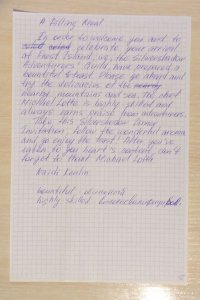 A Filling Meal
In order to welcome you and to
celebrate your arrival
at Forest Island, we, the Silverstardew
Adventurers' Guild, have prepared a
bountiful feast. Please go ahead and
try the delicacies of the
nearby mountains and sea. The chef
Michael Lotta is highly skilled and
always earns praise from adventurers.
Take this Silverstardew Dinner
Invitation, follow the wonderful aroma
and go enjoy the feast! After you've
eaten to your heart's content, don't
forget to thank Michael Lotta
bountiful
highly skilled